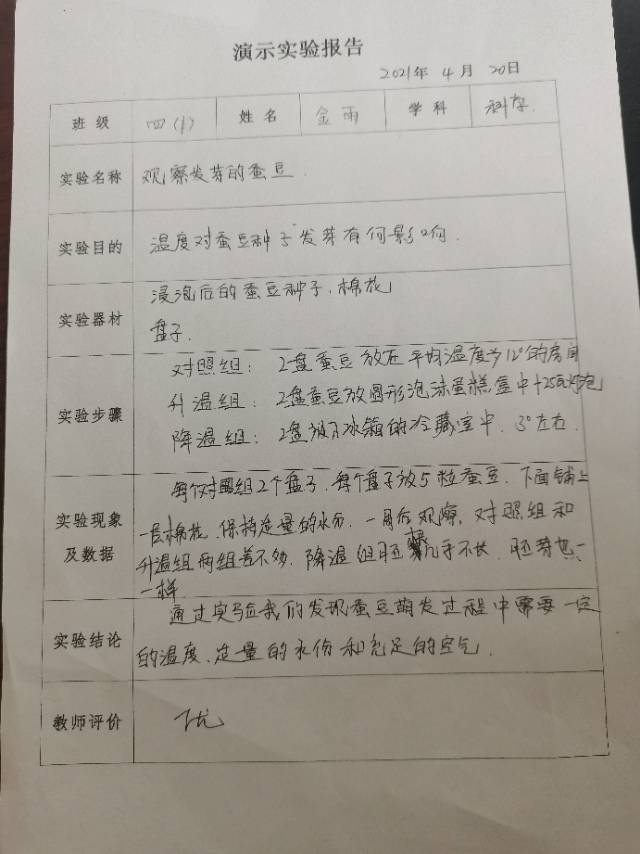 演示实验报告
2021年 4月 20日
班级 四(1) 姓名 金雨 学科 科学.
实验名称 观察发芽的蚕豆.
实验目的 温度对蚕豆种子发芽有何影响.
浸泡后的蚕豆种子、棉花
实验器材
盘子.
对照组: 2盘蚕豆放在平均温度为12°的房间
实验步骤 升温组: 2盘蚕豆放圆形泡沫蛋糕盒中+25瓦灯泡
降温组: 2盘放于冰箱的冷藏室中. 3°左右.
每个对照组2个盘子, 每个盘子放5粒蚕豆. 下面铺上
实验现象 一层棉花. 保持定量的水分. 一周后观察, 对照组和
及数据 升温组两组差不多. 降温组胚根几乎不长. 胚芽也
一样.
通过实验我们发现蚕豆萌发过程中需要一定
实验结论
的温度、定量的水份和充足的空气.
教师评价 优